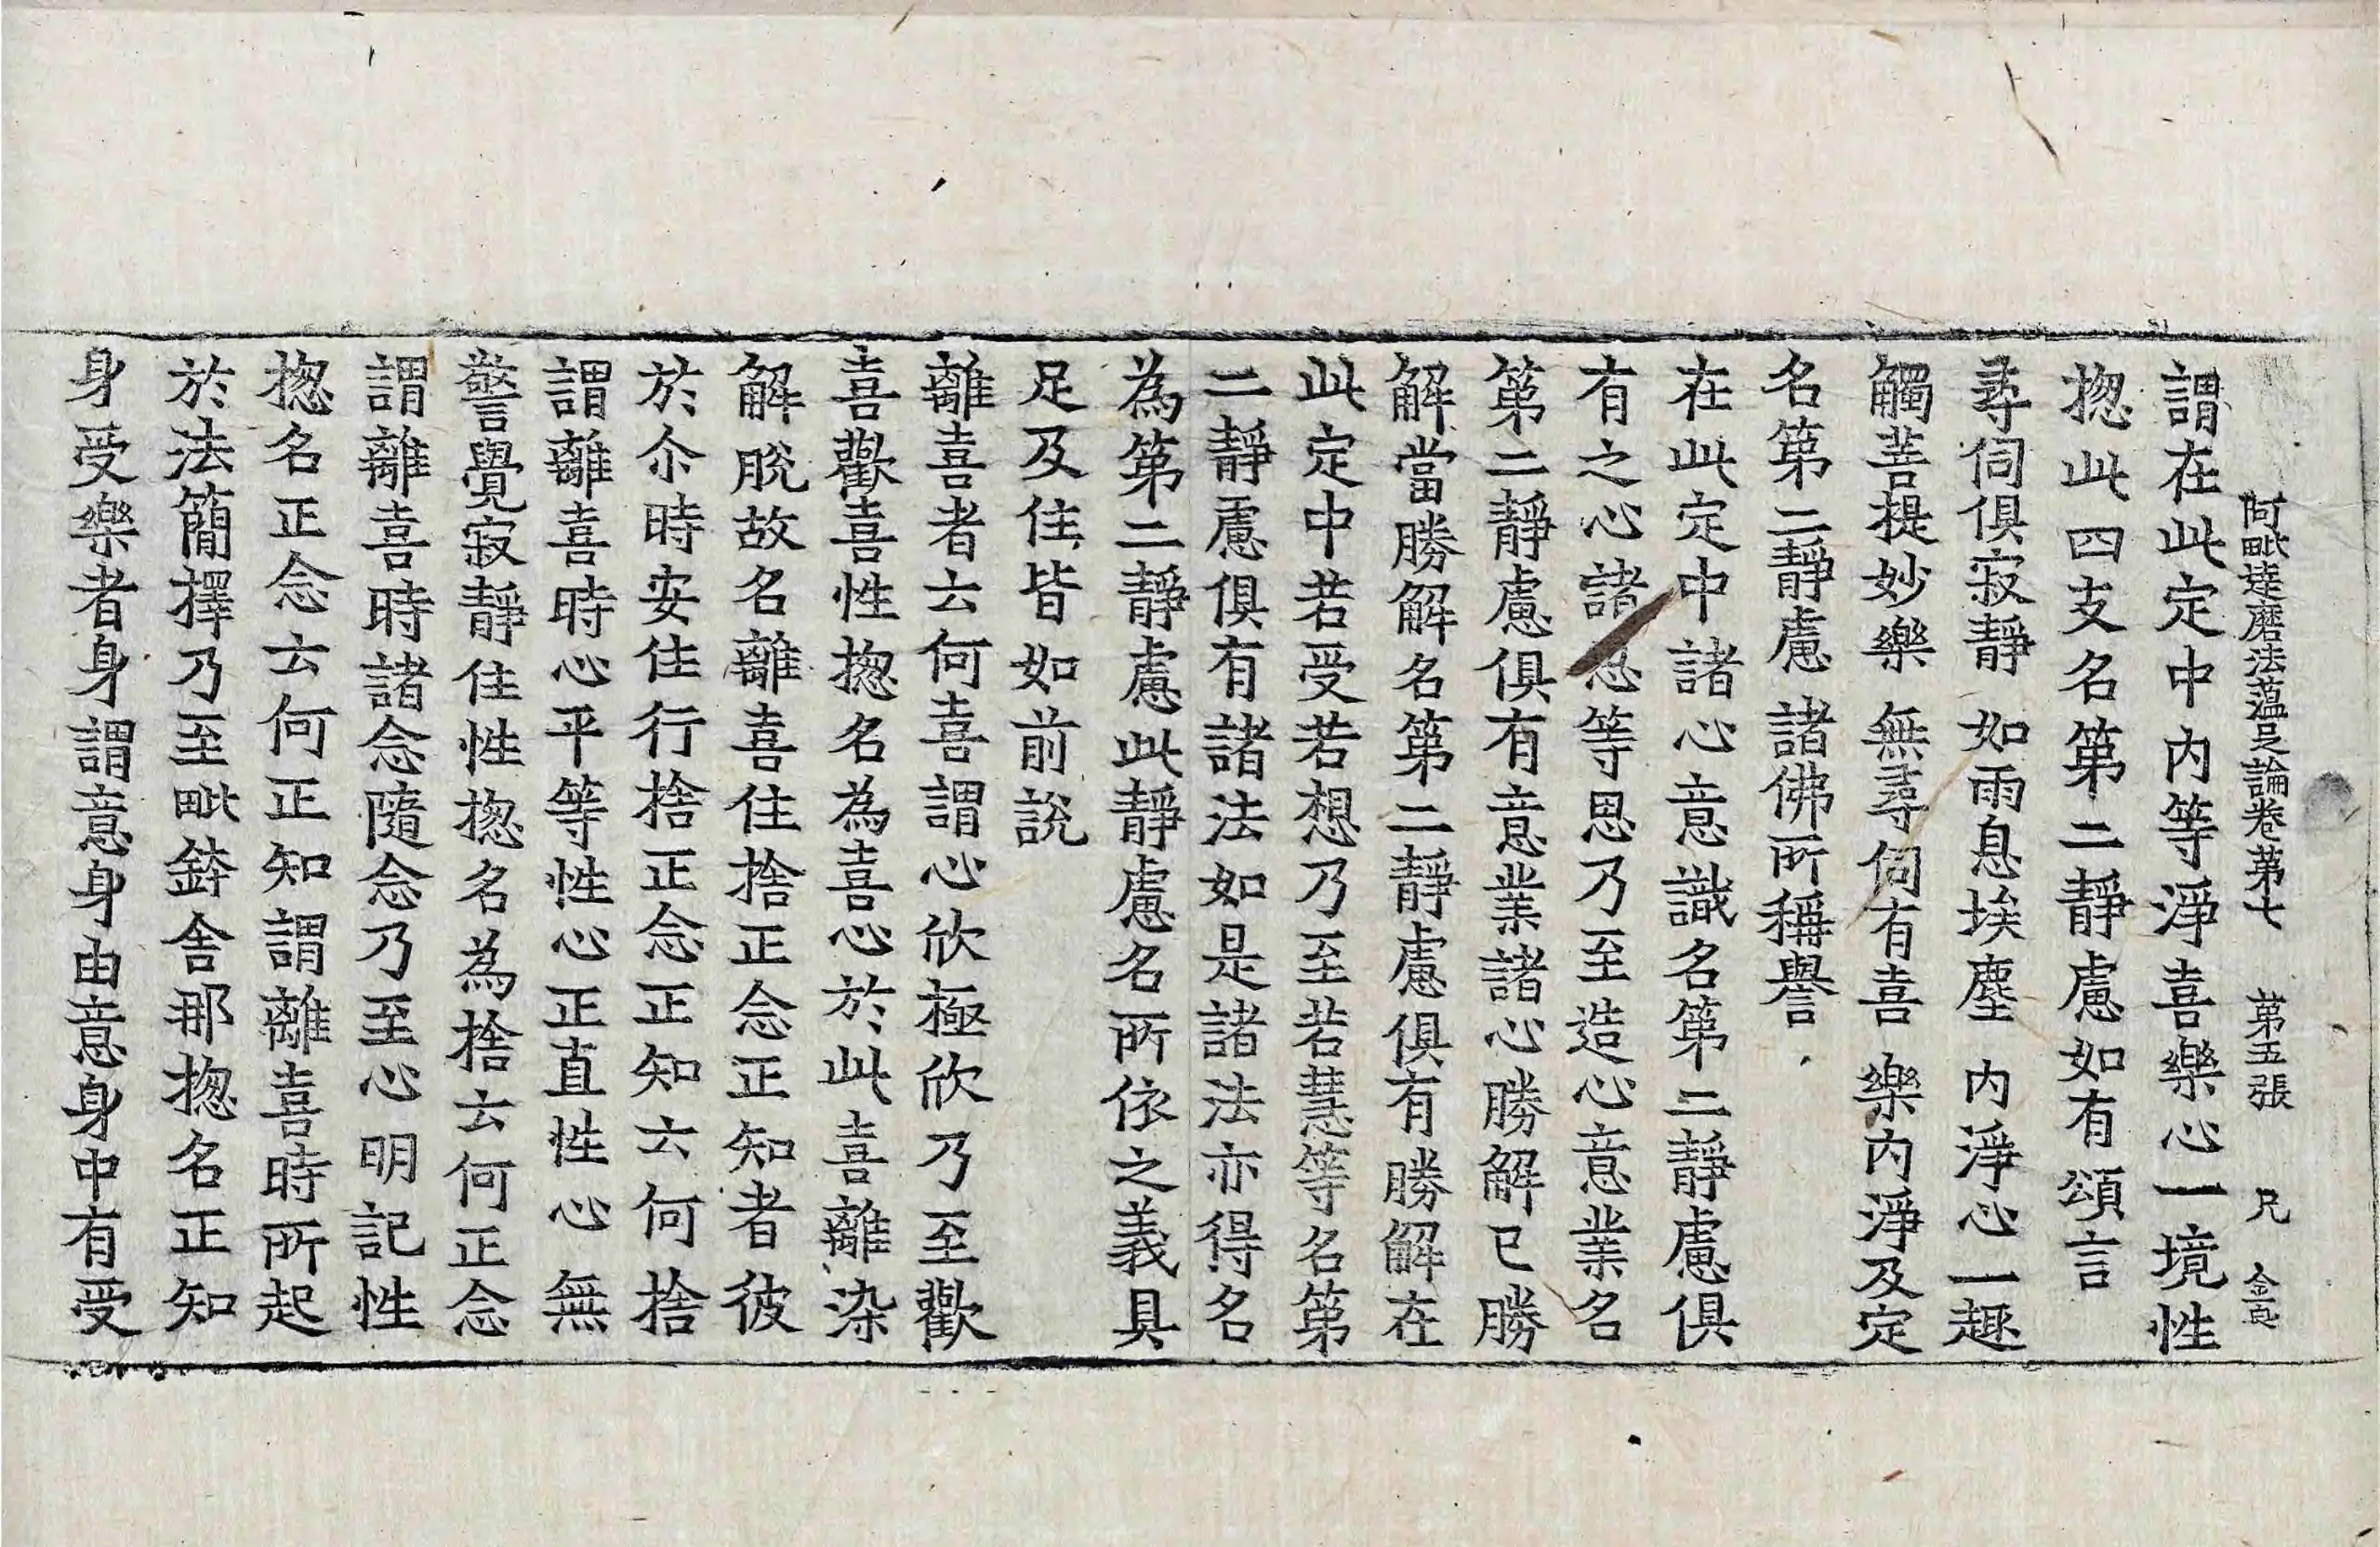 阿毗達磨法蘊足論卷第七 第五張 兄 金
謂在此定中內等淨喜樂心一境性
揔此四支名第二靜慮如有頌言
尋伺俱寂靜 如雨息埃塵 內淨心一趣
觸菩提妙樂 無尋伺有喜 樂內淨及定
名第二靜慮 諸佛所稱譽
在此定中諸心意識名第二靜慮俱
有之心諸思等思乃至造心意業名
第二靜慮俱有意業諸心勝解已勝
解當勝解名第二靜慮俱有勝解在
此定中若受若想乃至若慧等名第
二靜慮俱有諸法如是諸法亦得名
為第二靜慮此靜慮名所依之義具
足及住皆如前說
離喜者云何喜謂心欣極欣乃至歡
喜歡喜性揔名為喜心於此喜離染
解脫故名離喜住捨正念正知者彼
於尒時安住行捨正念正知云何捨
謂離喜時心平等性心正直性心無
警覺寂靜住性揔名為捨云何正念
謂離喜時諸念隨念乃至心明記性
揔名正念云何正知謂離喜時所起
於法簡擇乃至毗鉢舍那揔名正知
身受樂者身謂意身由意身中有受